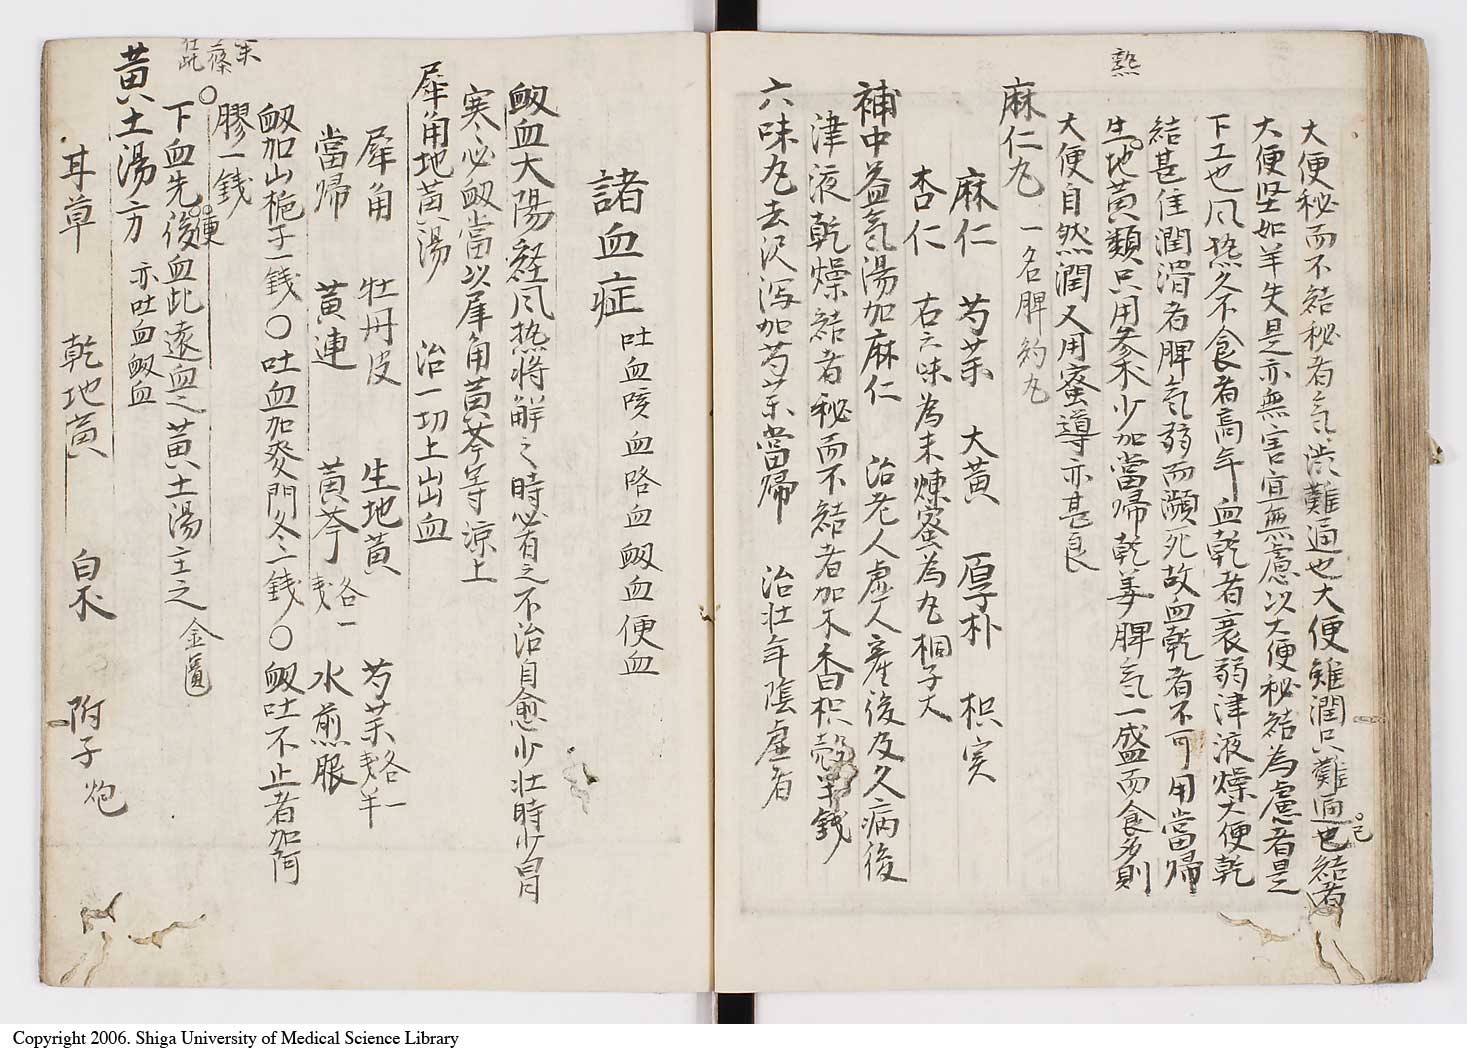 熱
大便秘而不結秘者气渋難通也大便雖潤只難通也結者
已
大便坚如羊失是亦無害宜無慮以大便秘結為慮者是
下工也风热久不食者高年血乾者衰弱津液燥大便乾
結甚佳潤滑者脾气弱而瀕死故血乾者不可用當帰
生地黄類只用参术少加當帰乾姜脾气一盛而食多則
大便自然潤又用蜜導亦甚良
麻仁丸 一名脾約丸
麻仁 芍薬 大黄 厚朴 枳实
杏仁 右六味為末煉蜜為丸桐子大
補中益气湯加麻仁 治老人虚人産後及久病後
津液乾燥結者秘而不結者加木香枳殻半錢
六味丸去沢瀉加芍薬當帰 治壮年陰虚者
諸血症 吐血咳血咯血衂血便血
衂血大陽経风热将解之時必有之不治自愈少壮時少冒
寒必衂當以犀角黄芩等涼上
犀角地黄湯 治一切上出血
犀角 牡丹皮 生地黄 芍薬各一戋半
當帰 黄連 黄芩各一戋 水煎服
衂加山梔子一錢〇吐血加麥門冬二錢〇衂吐不止者加阿
膠一錢
〇下血先後血此遠血也黄土湯主之 金匱
便
黄土湯方 亦吐血衂血
耳草 乾地黄 白术 附子炮